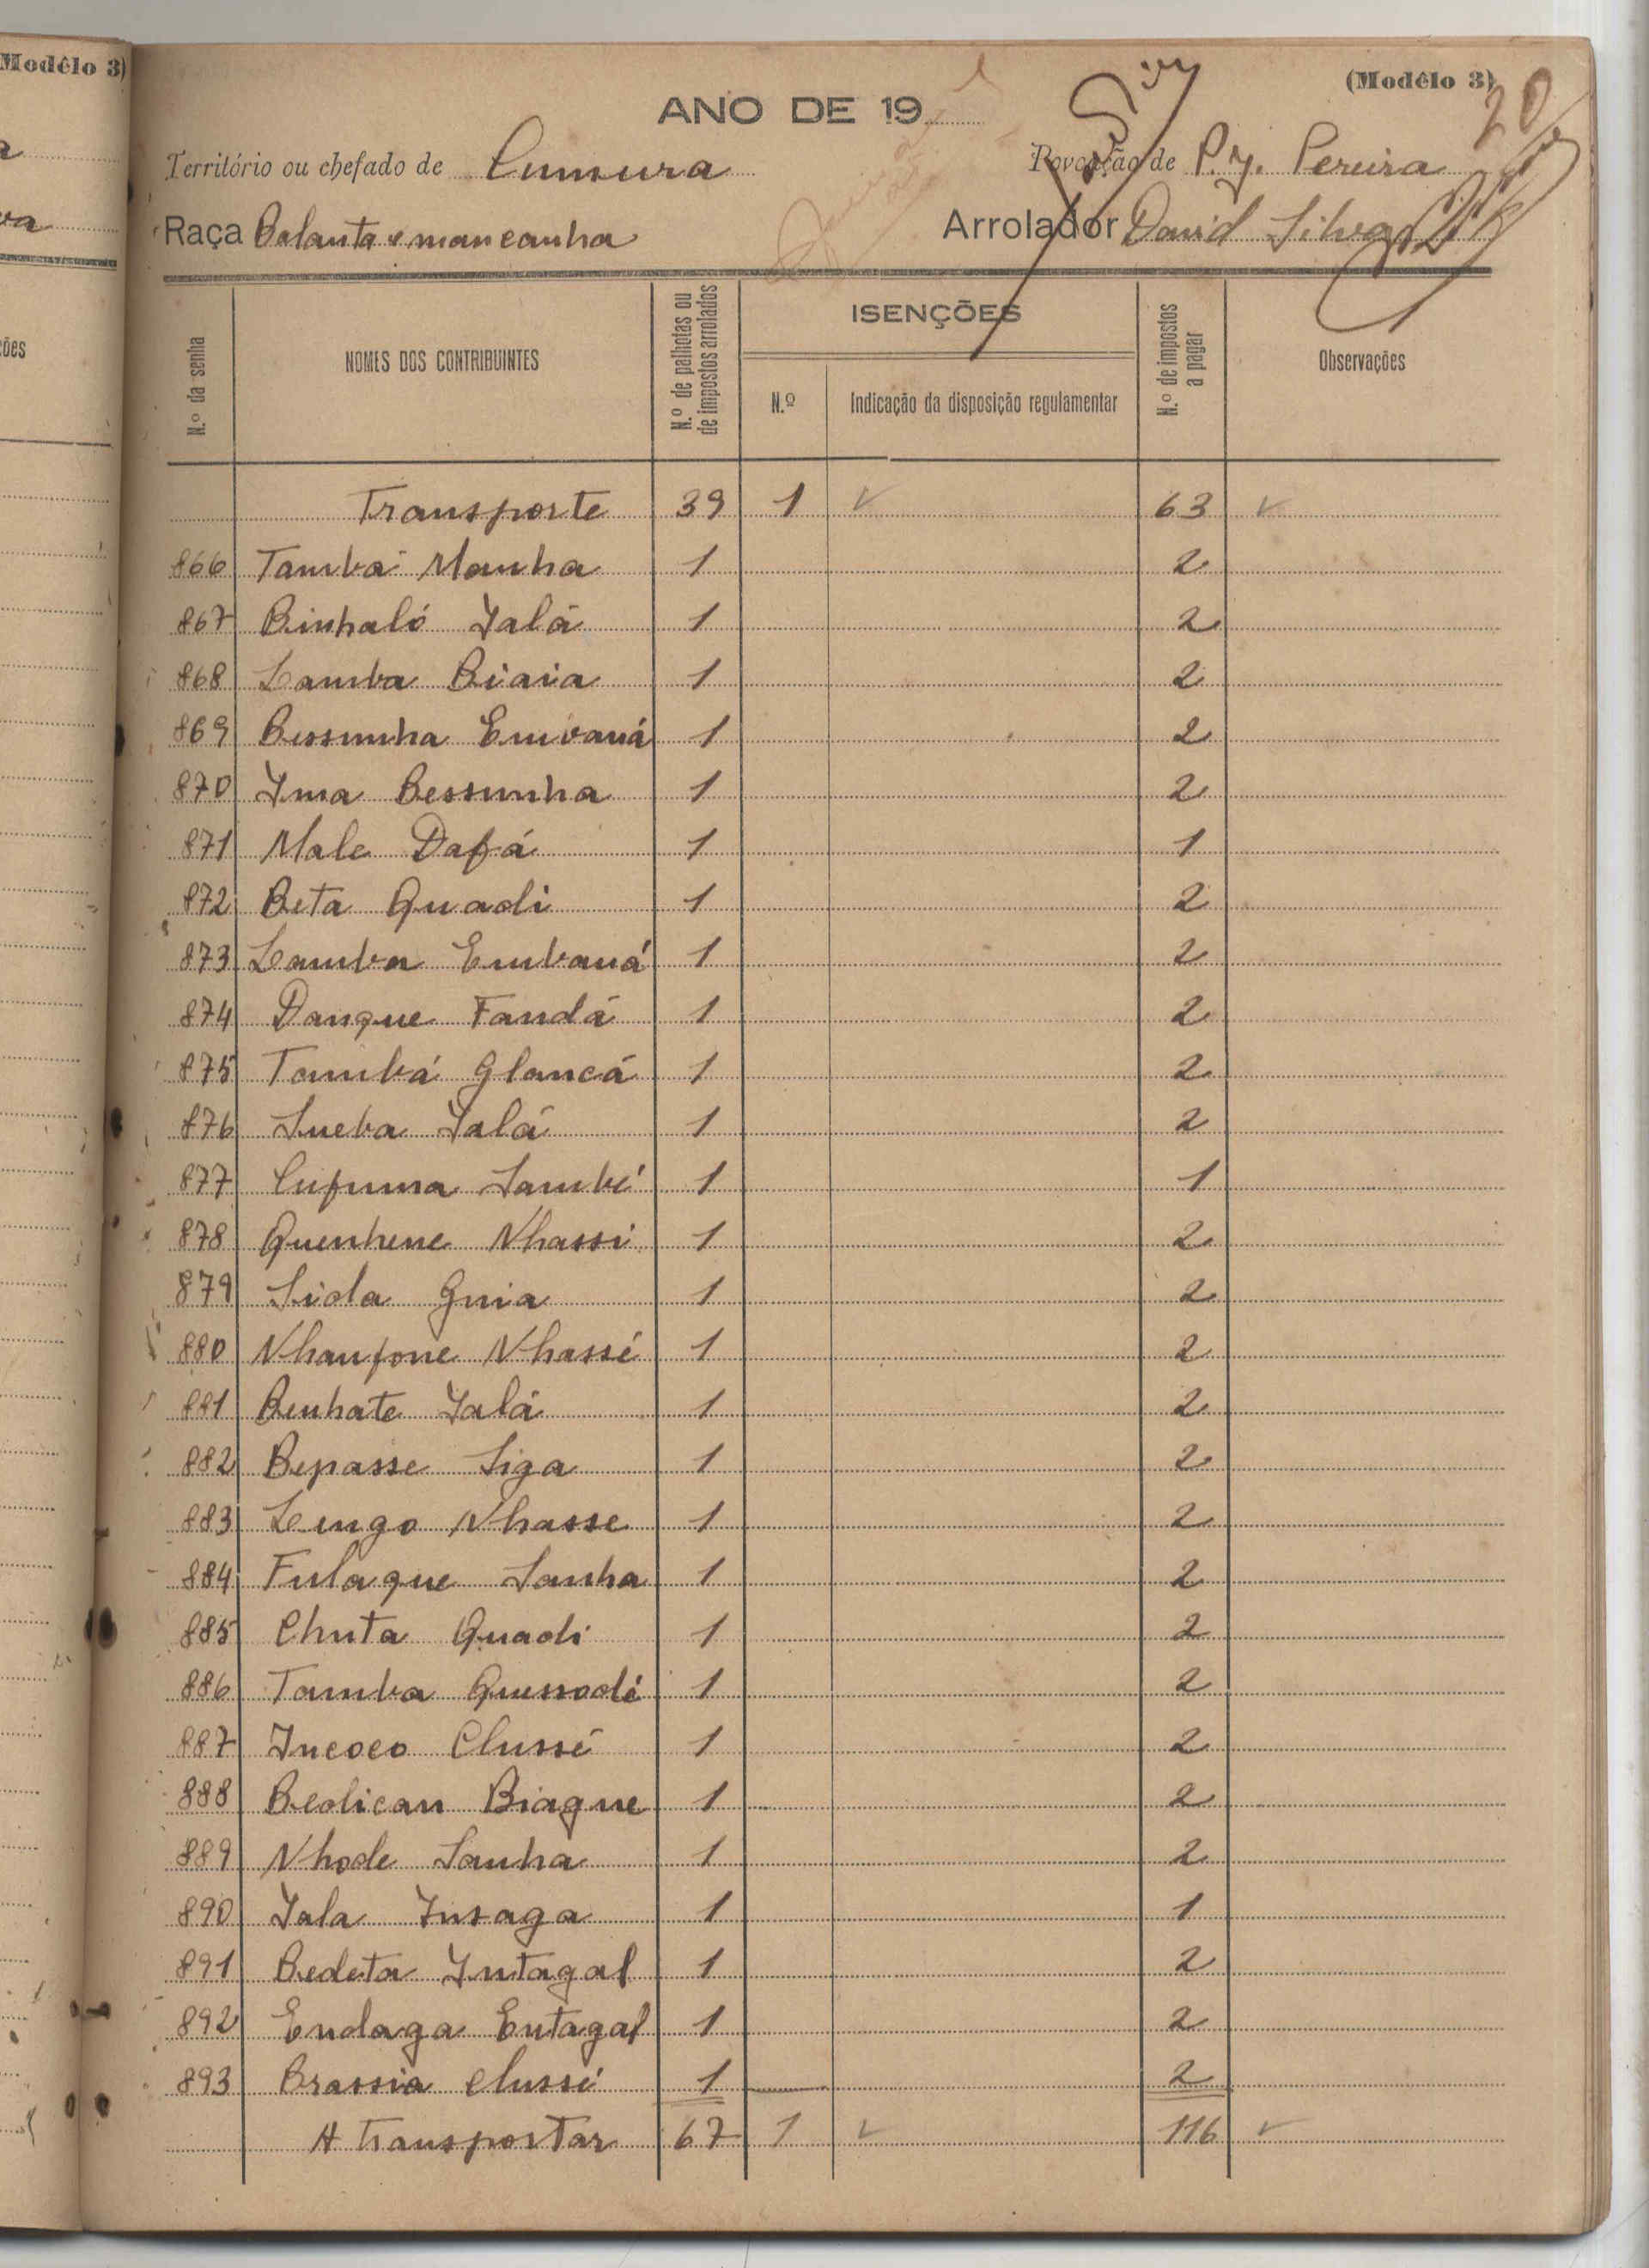 Modêlo 3)
ções
(Modêlo 3)
20
ANO DE 19
Território ou chefado de Cumura
Povoação de P. J. Pereira
Raça Balanta e mancanha
Arrolador David Silva
N.º da senha
NOMES DOS CONTRIBUINTES
N.º de palhotas ou de impostos arrolados
ISENÇÕES
N.º
Indicação da disposição regulamentar
N.º de impostos a pagar
Observações
Transporte 39 1 ✓ 63 ✓
866 Tamba Manha 1 2
867 Binhaló Ialá 1 2
868 Lamba Biaia 1 2
869 Bessunha Embaná 1 2
870 Yma Bessunha 1 2
871 Male Dafá 1 1
872 Beta Quadi 1 2
873 Lamba Embaná 1 2
874 Danque Fandá 1 2
875 Tambá Glancá 1 2
876 Sueba Ialá 1 2
877 Cufuma Sambé 1 1
878 Quenhene Nhassi 1 2
879 Siola Guia 1 2
880 Nhanfone Nhassé 1 2
881 Benhate Ialá 1 2
882 Bepasse Siga 1 2
883 Lengo Nhasse 1 2
884 Fulaque Sanha 1 2
885 Chuta Quadi 1 2
886 Tamba Quessodé 1 2
887 Incoco Clussé 1 2
888 Bedican Biague 1 2
889 Nhode Sanha 1 2
890 Iala Insaga 1 1
891 Bedeta Intagal 1 2
892 Endaga Entagal 1 2
893 Brassia Clussé 1 2
A Transportar 67 1 ✓ 116 ✓